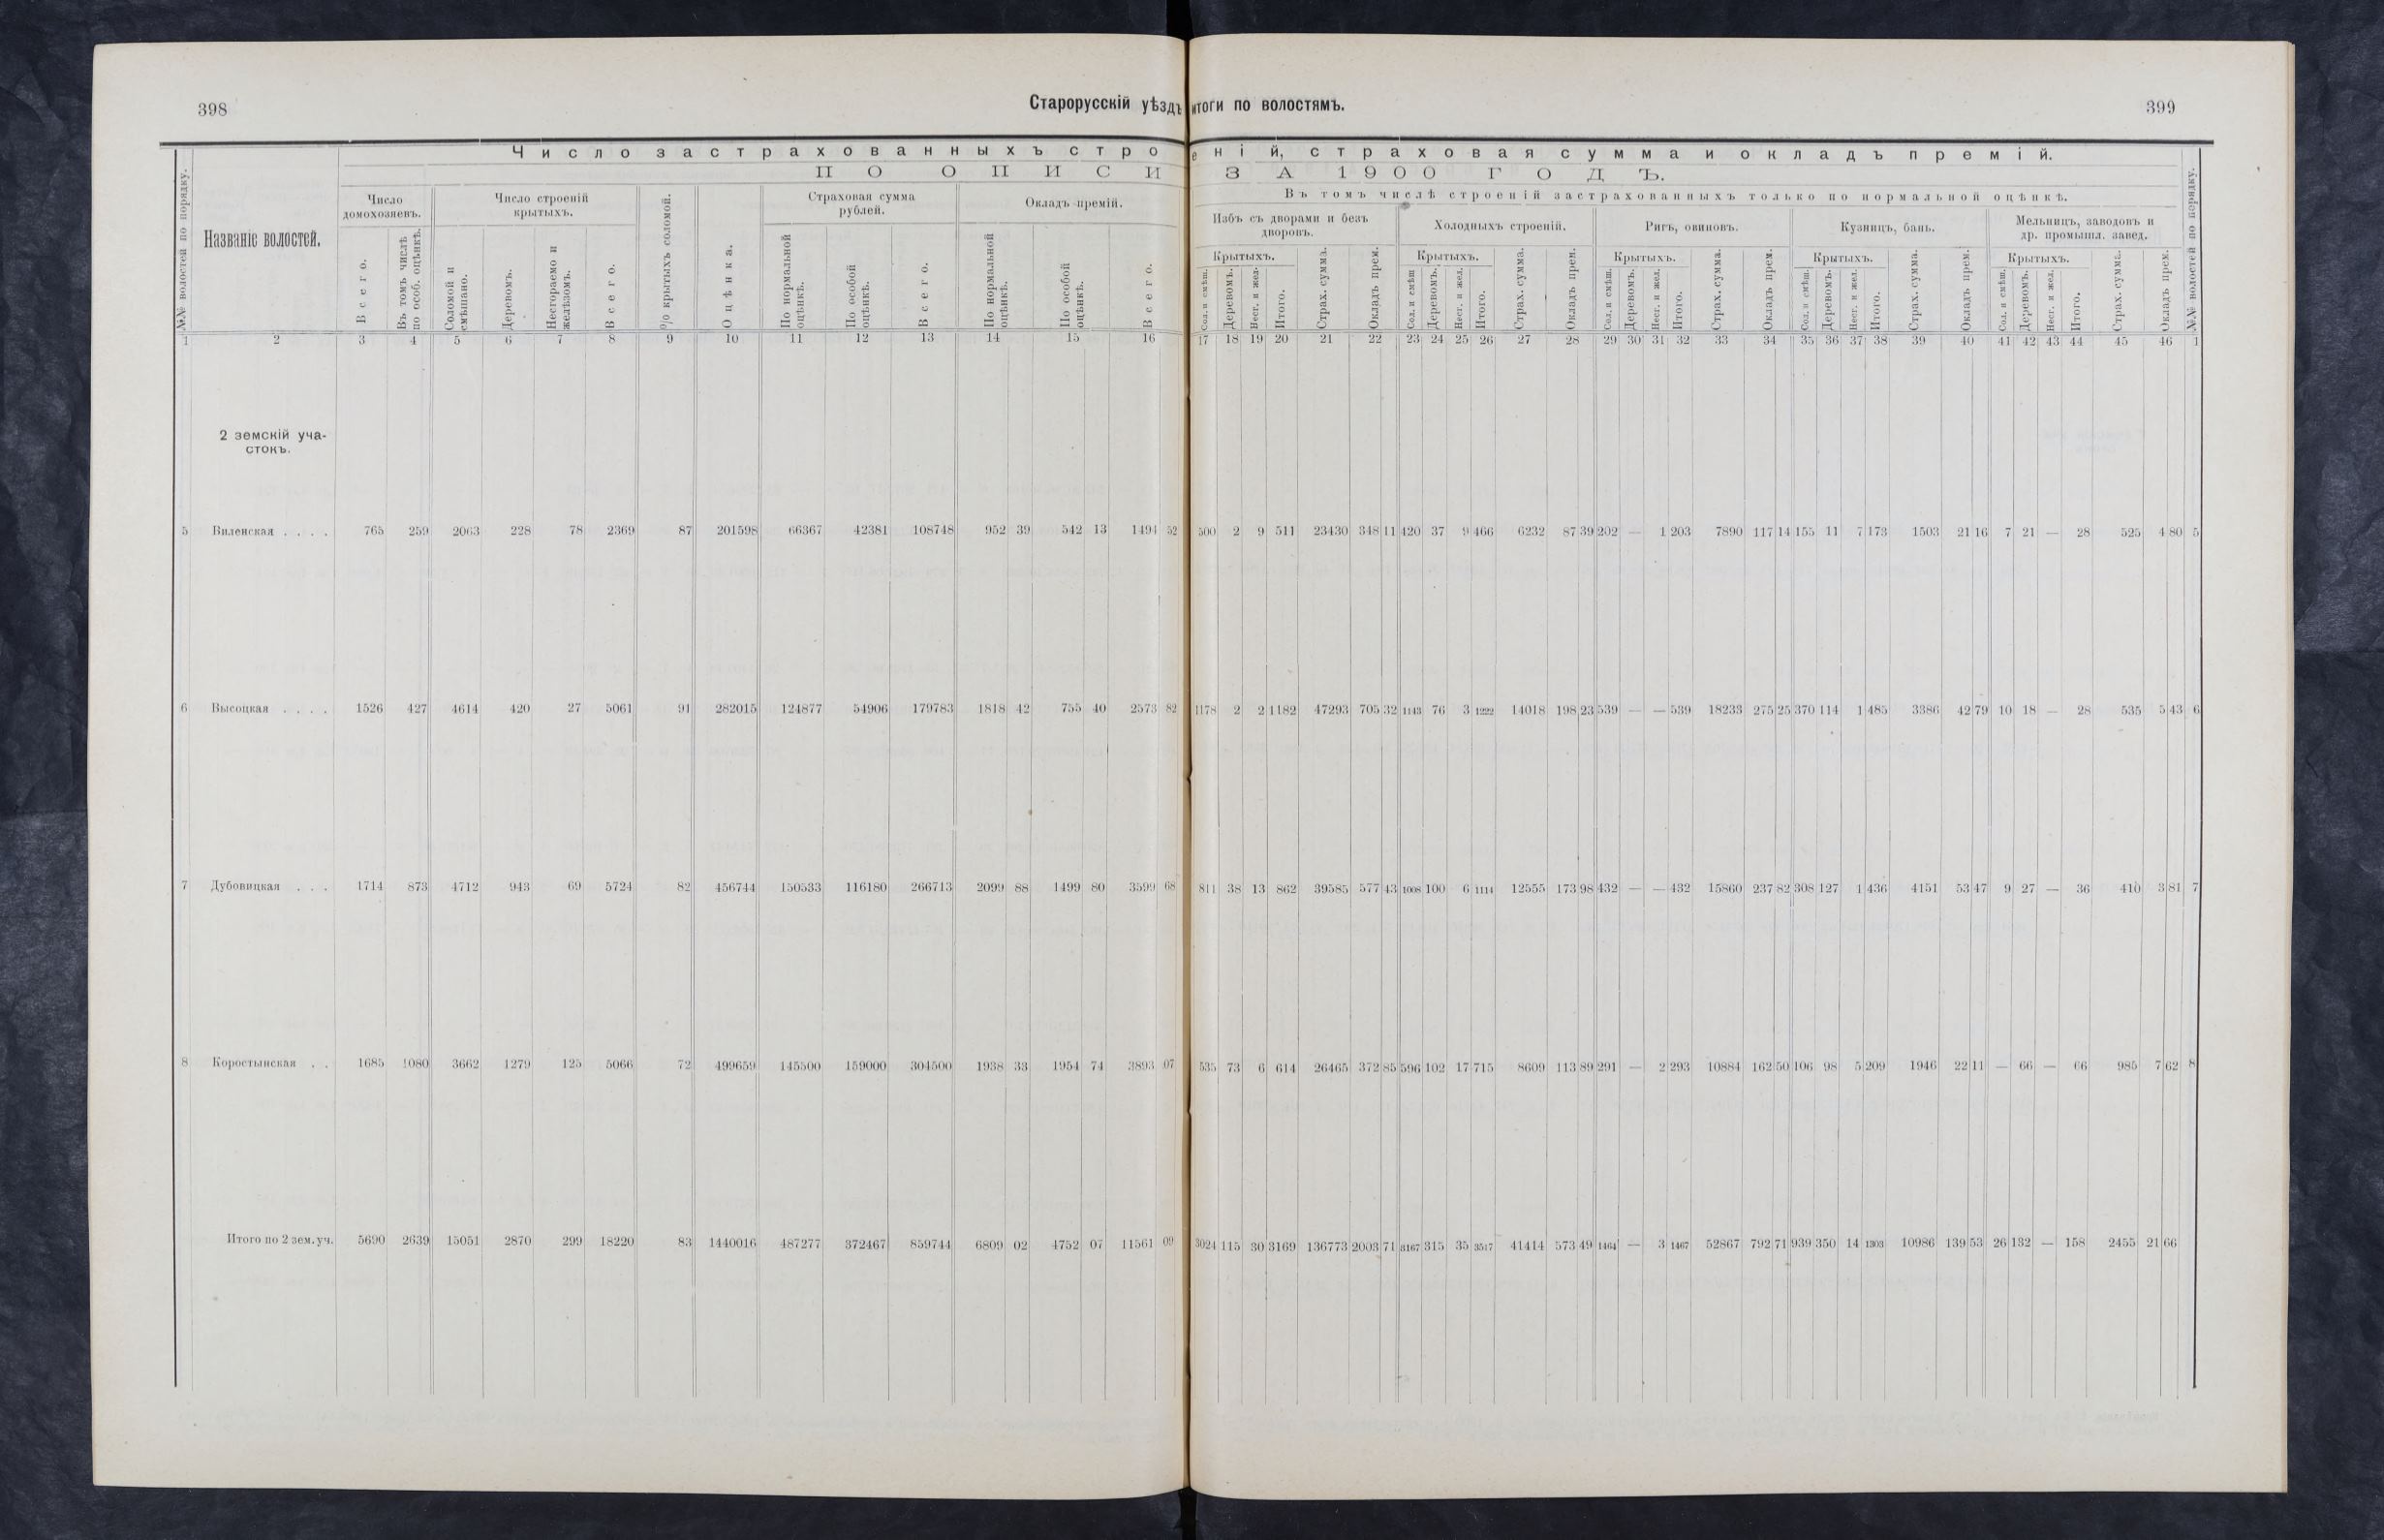 398
Старорусскій уѣздъ
итоги по волостямъ.
399
Число застрахованныхъ стро
еній, страховая сумма и окладъ премій.
ПО ОПИСИ
ЗА 1900 ГОДЪ.
Въ томъ числѣ строеній застрахованныхъ только по нормальной оцѣнкѣ.
№№ волостей по порядку.
Названіе волостей.
Число домохозяевъ.
Всего.
Въ томъ числѣ по особ. оцѣнкѣ.
Число строеній крытыхъ.
Соломой и смѣшано.
Деревомъ.
Несгораемо и желѣзомъ.
Всего.
% крытыхъ соломой.
Оцѣнка.
Страховая сумма рублей.
По нормальной оцѣнкѣ.
По особой оцѣнкѣ.
Всего.
Окладъ премій.
По нормальной оцѣнкѣ.
По особой оцѣнкѣ.
Всего.
Избъ съ дворами и безъ дворовъ.
Крытыхъ.
Сол. и смѣш.
Деревомъ.
Несг. и жел.
Итого.
Страх. сумма.
Окладъ прем.
Холодныхъ строеній.
Крытыхъ.
Сол. и смѣш
Деревомъ.
Несг. и жел.
Итого.
Страх. сумма.
Окладъ прем.
Ригъ, овиновъ.
Крытыхъ.
Сол. и смѣш.
Деревомъ.
Несг. и жел.
Итого.
Страх. сумма.
Окладъ прем.
Кузницъ, бань.
Крытыхъ.
Сол. и смѣш.
Деревомъ.
Несг. и жел.
Итого.
Страх. сумма.
Окладъ прем.
Мельницъ, заводовъ и др. промышл. завед.
Крытыхъ.
Сол. и смѣш.
Деревомъ.
Несг. и жел.
Итого.
Страх. сумма.
Окладъ прем.
№№ волостей по порядку.
1 2 3 4 5 6 7 8 9 10 11 12 13 14 15 16 17 18 19 20 21 22 23 24 25 26 27 28 29 30 31 32 33 34 35 36 37 38 39 40 41 42 43 44 45 46 1
2 земскій уча-
стокъ.
5 Виленская . . . . 765 259 2063 228 78 2369 87 201598 66367 42381 108748 952 39 542 13 1494 52 500 2 9 511 23430 348 11 420 37 9 466 6232 87 39 202 — 1 203 7890 117 14 155 11 7 173 1503 21 16 7 21 — 28 525 4 80 5
6 Высоцкая . . . . 1526 427 4614 420 27 5061 91 282015 124877 54906 179783 1818 42 755 40 2573 82 1178 2 2 1182 47293 705 32 1143 76 3 1222 14018 198 23 539 — — 539 18233 275 25 370 114 1 485 3386 42 79 10 18 — 28 535 5 43 6
7 Дубовицкая . . . 1714 873 4712 943 69 5724 82 456744 150533 116180 266713 2099 88 1499 80 3599 68 811 38 13 862 39585 577 43 1008 100 6 1114 12555 173 98 432 — — 432 15860 237 82 308 127 1 436 4151 53 47 9 27 — 36 410 3 81 7
8 Коростынская . . 1685 1080 3662 1279 125 5066 72 499659 145500 159000 304500 1938 33 1954 74 3893 07 535 73 6 614 26465 372 85 596 102 17 715 8609 113 89 291 — 2 293 10884 162 50 106 98 5 209 1946 22 11 — 66 — 66 985 7 62 8
Итого по 2 зем. уч. 5690 2639 15051 2870 299 18220 83 1440016 487277 372467 859744 6809 02 4752 07 11561 09 3024 115 30 3169 136773 2003 71 3167 315 35 3517 41414 573 49 1464 — 3 1467 52867 792 71 939 350 14 1303 10986 139 53 26 132 — 158 2455 21 66